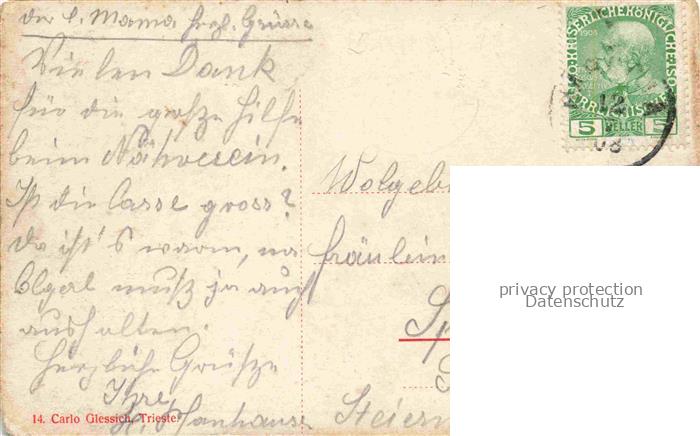 der l. Mama herzl. Grüsse
Vielen Dank
für die große Hilfe
beim Nähverein.
Ist die Casse gross?
Da ist's warm, na
Olgerl muß ja auch
aushalten.
Herzliche Grüße
Ihre
14. Carlo Glessich, Trieste
KAISERLICHE KÖNIGLICHE
1908
5 HELLER 5
12
08
Wolgeb
Fräulein
Sp
Steierm
privacy protection
Datenschutz